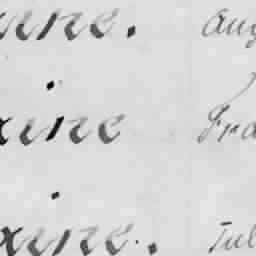 ine. Aug
xine Fra
xine. Jul